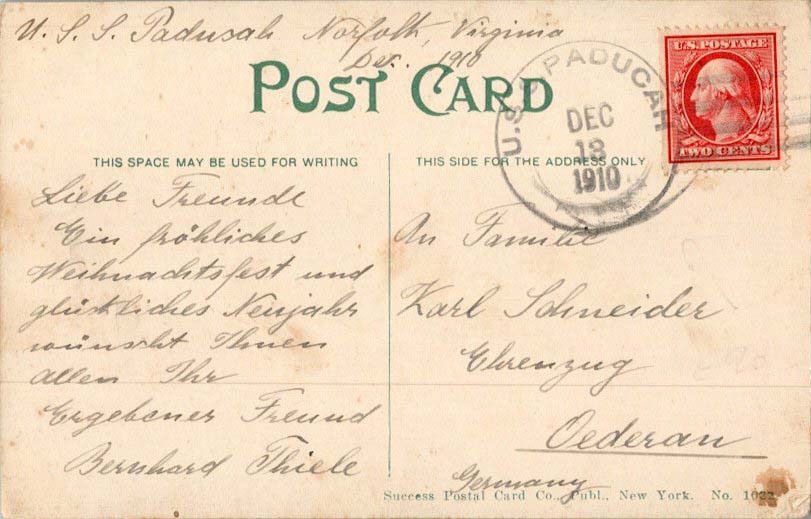 U. S. S. Padusah Norfolk, Virginia
Dez. 1910
POST CARD
U.S.S. PADUCAH
DEC
13
1910
U.S. POSTAGE
TWO CENTS
THIS SPACE MAY BE USED FOR WRITING
THIS SIDE FOR THE ADDRESS ONLY
Liebe Freunde
Ein fröhliches
Weihnachtsfest und
glückliches Neujahr
wünscht Ihnen
allen Ihr
Ergebener Freund
Bernhard Thiele
An Familie
Karl Schneider
Ehrenzug
Oederan
Germany
Success Postal Card Co., Publ., New York. No. 1022